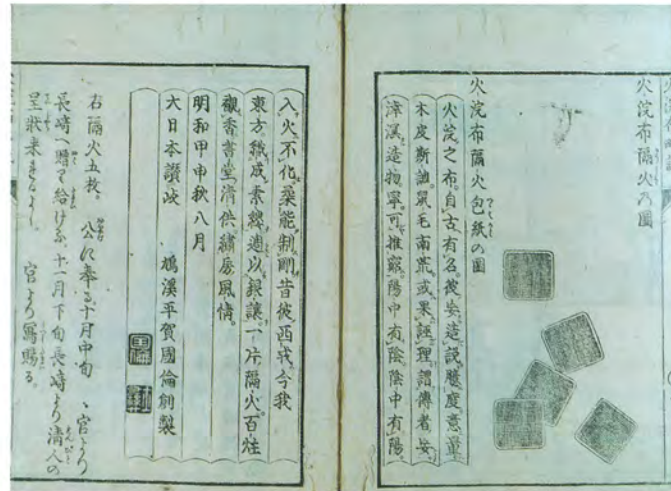 火浣布隔火乃圖
火浣布隔火包紙の圖
火浣之布。自古有名。彼妄造説。臆度意量
木皮斯訛。鼠毛南荒。或果誣理。謬傳者妄。
滓溟造物。寧可推窮。陽中有陰。陰中有陽。
入火不化。柔能制剛。昔從西戎。今我
東方。織成素縷。邊以銀鑲。一片隔火。百炷
觀香。書堂清供。繡房風情。
明和甲申秋八月
大日本讃岐 鳩溪平賀國倫創製
右隔火五枚。 公に奉る十月中旬 官より
長崎へ贈り給けるに十一月下旬長崎より清人の
呈状来るよし。 官より寫賜る。